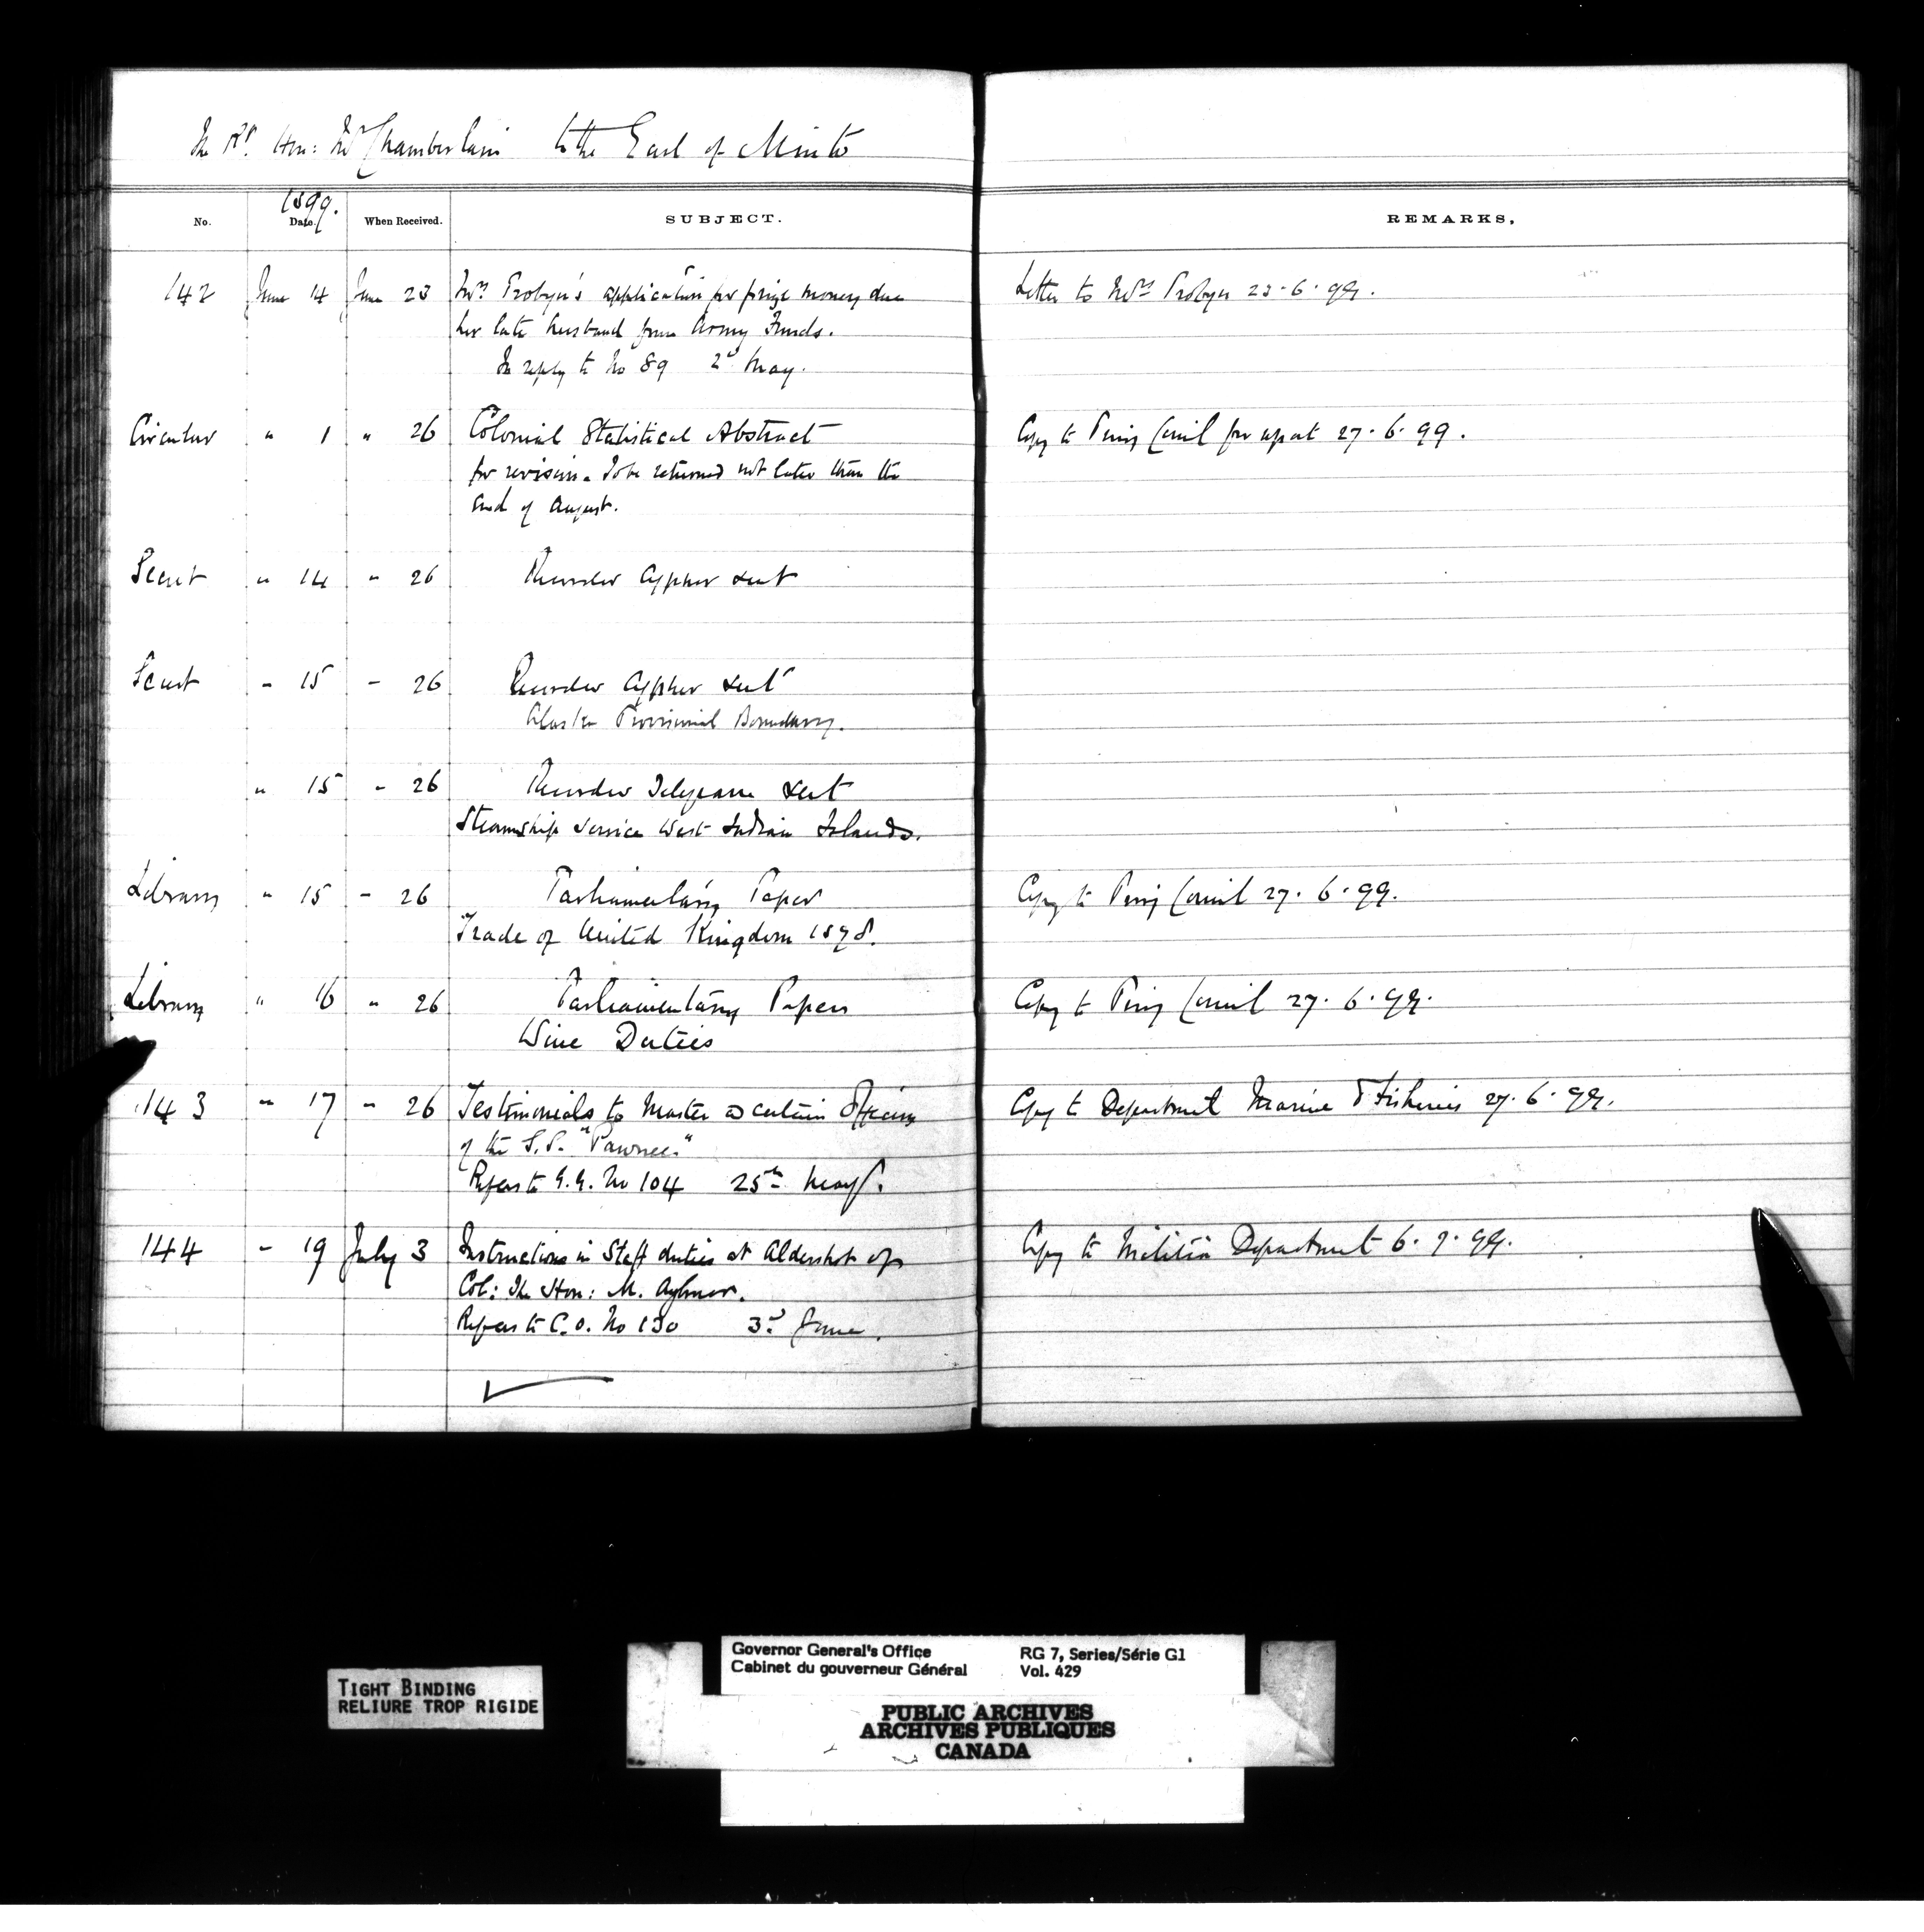 The Rt. Hon: Mr Chamberlain to the Earl of Minto
1899.
No. Date. When Received. SUBJECT. REMARKS.
142 June 14 June 23 Mrs. Probyn's application for prize money due Letter to Mrs Probyn 23.6.99.
her late husband from Army Funds.
In reply to No 89 2d May.
Circular " 1 " 26 Colonial Statistical Abstract Copy to Privy Council for report 27.6.99.
for revision. To be returned not later than the
end of August.
Secret " 14 " 26 Recorder Cypher sent
Secret " 15 " 26 Recorder Cypher sent
Alaska Provisional Boundary.
" 15 " 26 Recorder Telegram sent
Steamship Service West Indian Islands.
Library " 15 " 26 Parliamentary Paper Copy to Privy Council 27.6.99.
Trade of United Kingdom 1898.
Library " 16 " 26 Parliamentary Papers Copy to Privy Council 27.6.99.
Wine Duties
143 " 17 " 26 Testimonials to Master & certain Officers Copy to Department Marine & Fisheries 27.6.99.
of the S.S. "Pawnee."
Refers to G.G. No 104 25th May.
144 " 19 July 3 Instructions in Staff duties at Aldershot of Copy to Militia Department 6.7.99.
Col: The Hon: M. Aylmer.
Refers to C.O. No 130 3d June.
TIGHT BINDING
RELIURE TROP RIGIDE
Governor General's Office RG 7, Series/Série G1
Cabinet du gouverneur Général Vol. 429
PUBLIC ARCHIVES
ARCHIVES PUBLIQUES
CANADA